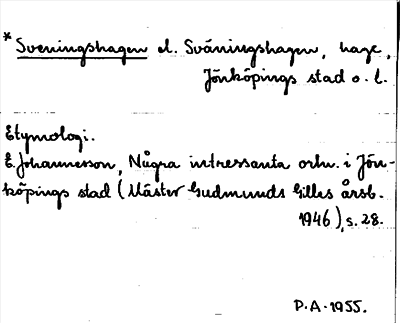 * Sveningshagen el. Sväningshagen, hage,
Jönköpings stad o. l.
Etymologi.
E. Johannesson, Några intressanta ortn. i Jön-
köpings stad (Mäster Gudmunds Gilles årsb.
1946), s. 28.
P.A. 1955.